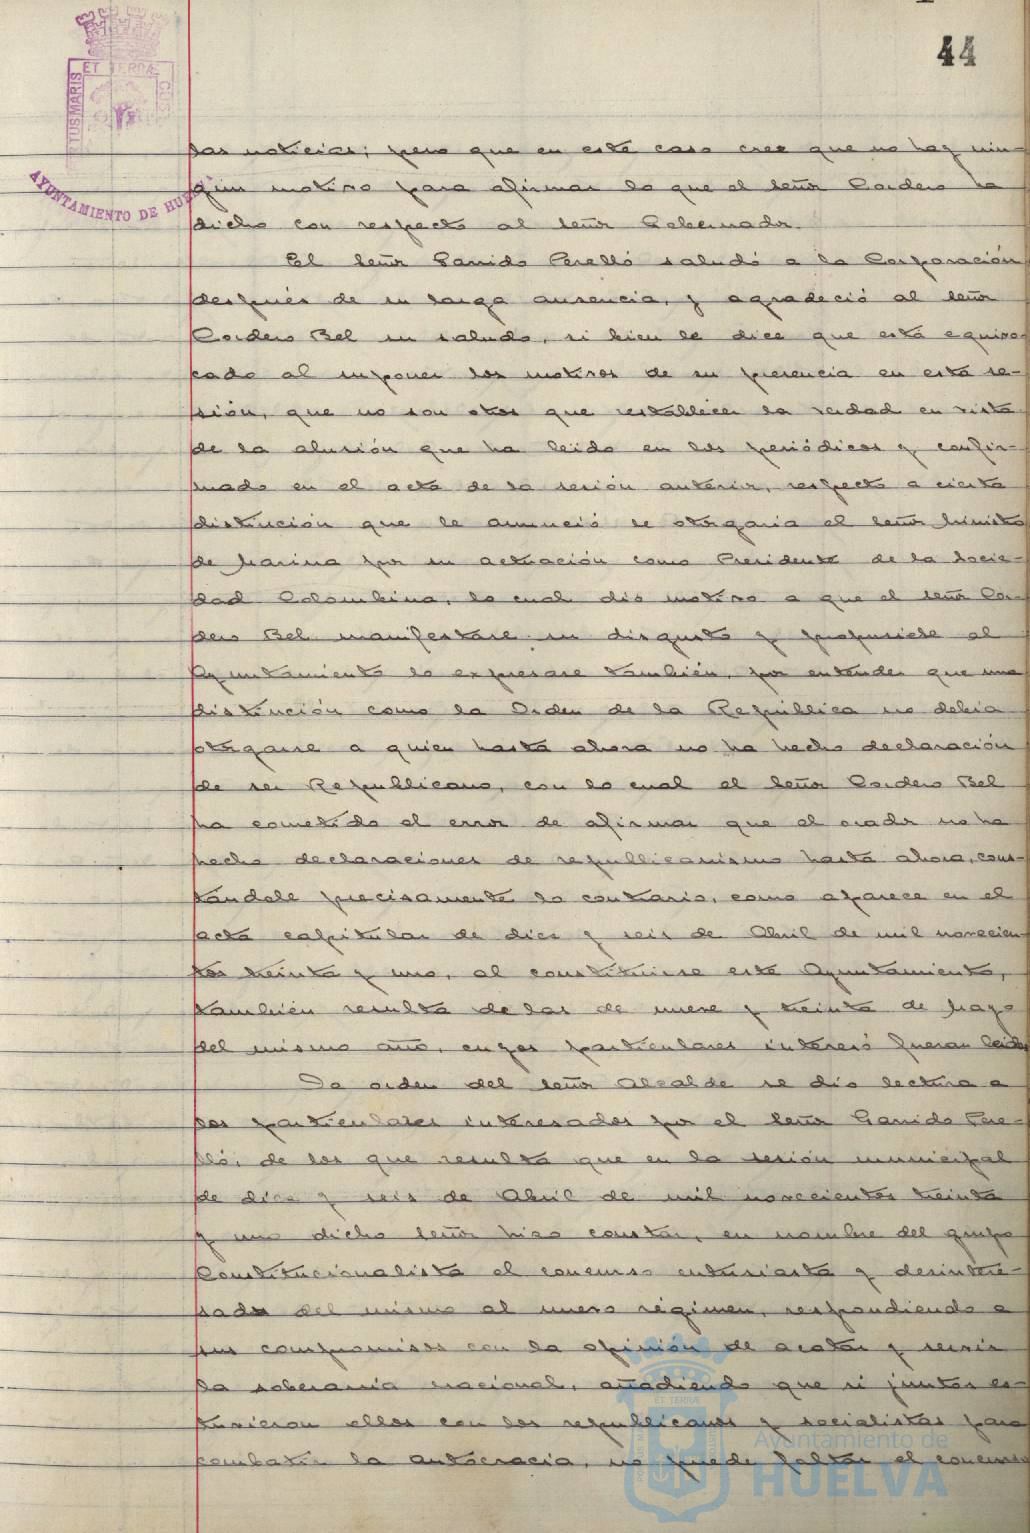 44
ET TERRÆ
TUS MARIS
AYUNTAMIENTO DE HUELVA
las noticias; pero que en este caso cree que no hay nin-
gún motivo para afirmar lo que el Señor Cordero ha
dicho con respecto al Señor Gobernador.
El Señor Garrido Perelló saludó a la Corporación
después de su larga ausencia, y agradeció al Señor
Cordero Bel su saludo, si bien le dice que está equivo-
cado al suponer los motivos de su presencia en esta se-
sión, que no son otros que restablecer la verdad en vista
de la alusión que ha leido en los periódicos y confir-
mado en el acta de la sesión anterior, respecto a cierta
distinción que se anunció se otorgaria el Señor Ministro
de Marina por su actuación como Presidente de la Socie-
dad Colombina, lo cual dio motivo a que el Señor Cor-
dero Bel manifestase su disgusto y propusiese al
Ayuntamiento lo expresase también, por entender que una
distinción como la Orden de la República no debia
otorgarse a quien hasta ahora no ha hecho declaración
de ser Republicano, con lo cual el Señor Cordero Bel
ha cometido el error de afirmar que el orador no ha
hecho declaraciones de republicanismo hasta ahora, cons-
tándole precisamente lo contrario, como aparece en el
acta capitular de diez y seis de Abril de mil novecien-
tos treinta y uno, al constituirse este Ayuntamiento,
también resulta de las de nueve y treinta de Mayo
del mismo año, cuyos particulares interesó fueran leidos
De orden del Señor Alcalde se dio lectura a
los particulares interesados por el Señor Garrido Pere-
lló, de los que resulta que en la sesión municipal
de diez y seis de Abril de mil novecientos treinta
y uno dicho Señor hizo constar, en nombre del grupo
Constitucionalista el concurso entusiasta y desintere-
sado del mismo al nuevo régimen, respondiendo a
sus compromisos con la opinión de acatar y servir
la soberania nacional, añadiendo que si juntos es-
tuvieron ellos con los republicanos y socialistas para
combatir la autocracia, no puede faltar el concurso
ET TERRÆ
Ayuntamiento de
HUELVA